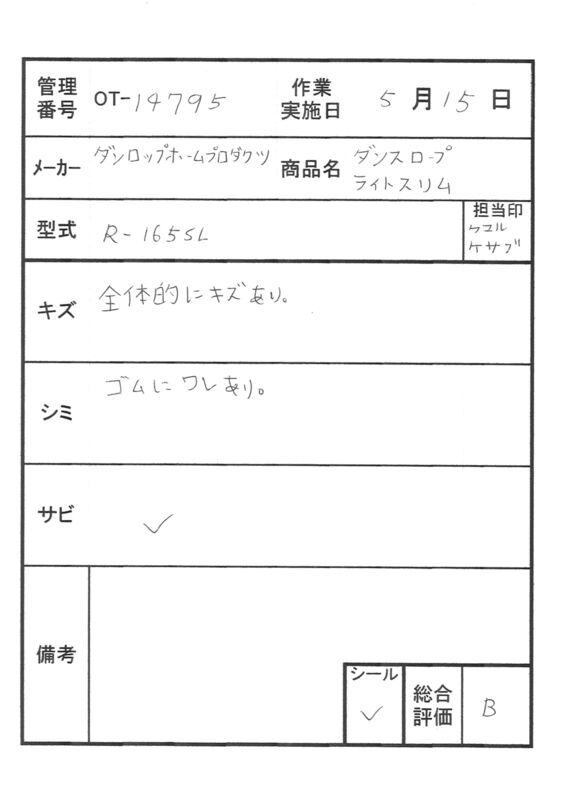 管理番号 OT-14795 作業実施日 5月15日
メーカー ダンロップホームプロダクツ 商品名 ダンスロープ
ライトスリム
型式 R-165SL 担当印
ケサブ
キズ 全体的にキズあり。
シミ ゴムにワレあり。
サビ ✓
備考
シール ✓ 総合評価 B